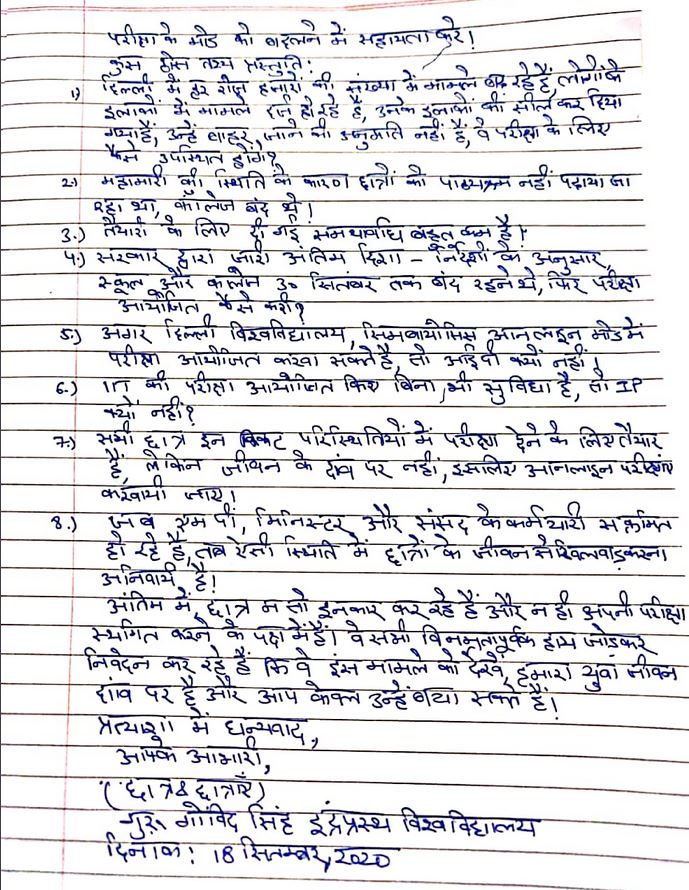 परीक्षा के मोड को बदलने में सहायता करे!
कुछ ठोस तथ्य प्रस्तुति:
1) दिल्ली में हर रोज़ हजारों की संख्या में मामले बढ़ रहे हैं, लोगों के
इलाकों में मामले दर्ज हो रहे हैं, उनके इलाकों को सील कर दिया
गया है, उन्हें बाहर जाने की अनुमति नहीं है, वे परीक्षा के लिए
कैसे उपस्थित होंगे?
2.) महामारी की स्थिति के कारण छात्रों को पाठ्यक्रम नहीं पढ़ाया जा
रहा था, कॉलेज बंद थे!
3.) तैयारी के लिए दी गई समयावधि बहुत कम है!
4.) सरकार द्वारा जारी अंतिम दिशा - निर्देशों के अनुसार,
स्कूल और कालेज 30 सितंबर तक बंद रहने थे, फिर परीक्षा
आयोजित कैसे करी?
5.) अगर दिल्ली विश्वविद्यालय, सिमबायोसिस आनलाइन मोड में
परीक्षा आयोजित करवा सकते है, तो आईपी क्यों नहीं!
6.) IIT की परीक्षा आयोजित किए बिना भी सुविधा है, तो IP
क्यों नहीं?
7.) सभी छात्र इन विकट परिस्थितियों में परीक्षा देने के लिए तैयार
हैं, लेकिन जीवन के दांव पर नहीं, इसलिए आनलाइन परीक्षाएं
करवायी जाए!
8.) जब एम पी, मिनिस्टर और संसद के कर्मचारी संक्रमित
हो रहे है, तब ऐसी स्थिति में छात्रों के जीवन से खिलवाड़ करना
अनिवार्य है!
अंतिम में, छात्र न तो इनकार कर रहे हैं और न ही अपनी परीक्षा
स्थगित करने के पक्ष में हैं। वे सभी विनम्रतापूर्वक हाथ जोडकर
निवेदन कर रहे हैं कि वे इस मामले को देखें, हमारा युवा जीवन
दांव पर है और आप केवल उन्हें बचा सकते हैं!
प्रत्याशा में धन्यवाद,
आपके आभारी,
(छात्र & छात्राएँ)
गुरु गोविंद सिंह इंद्रप्रस्थ विश्वविद्यालय
दिनाक: 18 सितम्बर, 2020